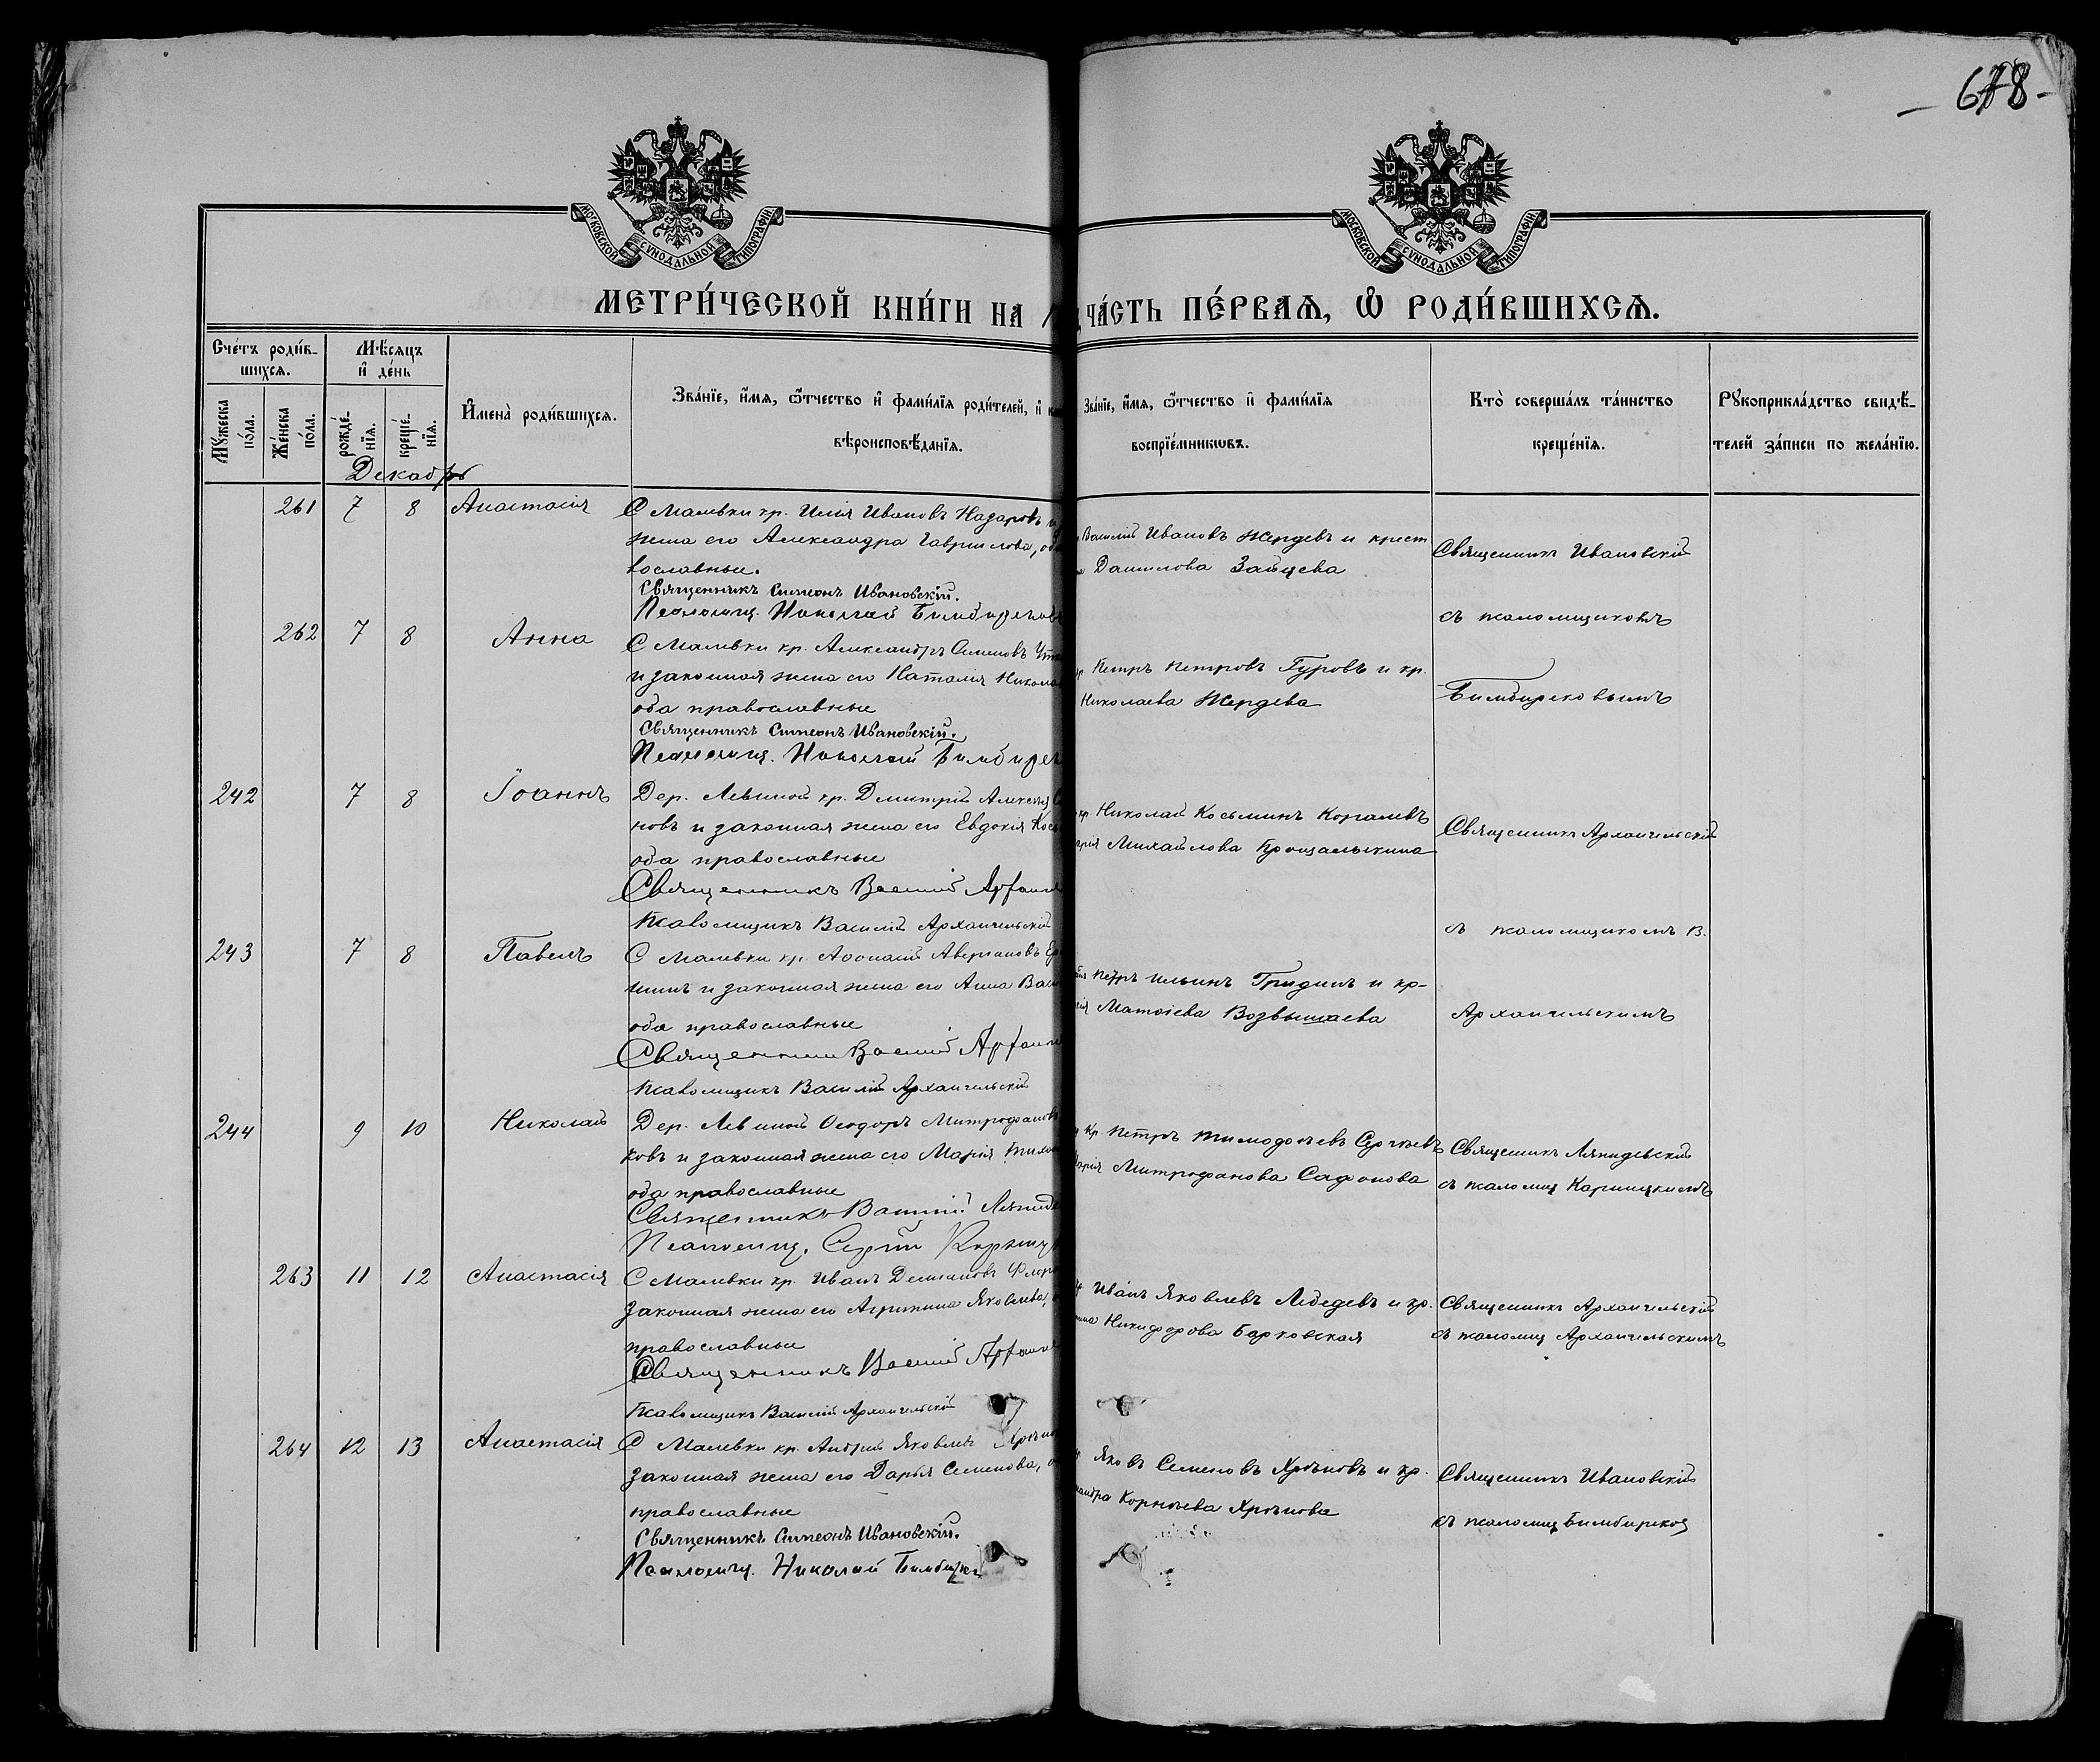 678
МОСКОВСКОЙ СѴНОДАЛЬНОЙ ТИПОГРАФІИ
МОСКОВСКОЙ СѴНОДАЛЬНОЙ ТИПОГРАФІИ
МЕТРИ́ЧЕСКОЙ КНИ́ГИ НА
ЧА́СТЬ ПЕ́РВАѦ, Ѡ҆ РОДИ́ВШИХСѦ.
Сче́тъ роди́в-
шихсѧ.
Мѣ́сяцъ
и҆ де́нь
Мꙋ́жеска по́ла.
Же́нска по́ла.
рожде́-
нїѧ.
креще́-
нїѧ.
И҆мена̀ роди́вшихсѧ.
Зва́нїе, и҆́мѧ, ѻ҆́тчество и҆ фами́лїѧ роди́телей, и҆
вѣроисповѣ́данїѧ.
Зва́нїе, и҆́мѧ, ѻ҆́тчество и҆ фами́лїѧ
воспрїе́мникѡвъ.
Кто̀ соверша́лъ та́инство
креще́нїѧ.
Рꙋкоприкла́дство свидѣ́-
телей за́писи по жела́нїю.
Декабрь
261 7 8 Анастасія
С Малевки кр. Илія Ивановъ Назаровъ и
жена его Александра Гаврилова,
вославные.
Священникъ Симеонъ Ивановскій.
Псаломщ. Николай
Василій Ивановъ Жердевъ и крест
Данилова Зайцева
Священникъ Ивановскій
съ псаломщикомъ
262 7 8 Анна
С Малевки кр. Александръ Семеновъ
и законная жена его Наталія
оба православные
Священникъ Симеонъ Ивановскій.
Псаломщ. Николай
Петръ Петровъ Гуровъ и кр.
Николаева Жердева
Бимбирековымъ
242 7 8 Іоаннъ
Дер. Левиной кр. Дмитрій
новъ и законная жена его Евдокія
оба православные
Священникъ Василій
Псаломщикъ Василій Архангельскій
кр Николай Косьминъ Королевъ
Михайлова
Священникъ Архангельскій
съ псаломщикомъ В.
243 7 8 Павелъ
С Малевки кр. Аѳонасій
и законная жена его Анна
оба православные
Священникъ Василій
Псаломщикъ Василій Архангельскій
Петръ Ильинъ Гридинъ и кр-
Матѳіева Возвышаева
Архангельскимъ
244 9 10 Николай
Дер. Левиной Ѳеодоръ Митрофановъ
ковъ и законная жена его Марія
оба православные
Священникъ Василій
Псаломщ. Сергій
Кр. Петръ Тимофѣевъ Сергѣевъ
Митрофанова Сафонова
Священникъ Ляпидевскій
съ псаломщ Кариицкимъ
263 11 12 Анастасія
С Малевки кр. Иванъ
законная жена его Агриппина Яковлева,
православные
Священникъ Василій
Псаломщикъ Василій Архангельскій
Иванъ Яковлевъ Лебедевъ и кр.
Никифорова Барковская
Священникъ Архангельскій
съ псаломщ Архангельскимъ
264 12 13 Анастасія
С Малевки кр. Андрей Яковлевъ
законная жена его Дарья Семенова,
православные
Священникъ Симеонъ Ивановскій.
Псаломщ. Николай
Яковъ Семеновъ Хрѣновъ и кр.
Корнѣева Хрѣнова
Священникъ Ивановскій
съ псаломщ